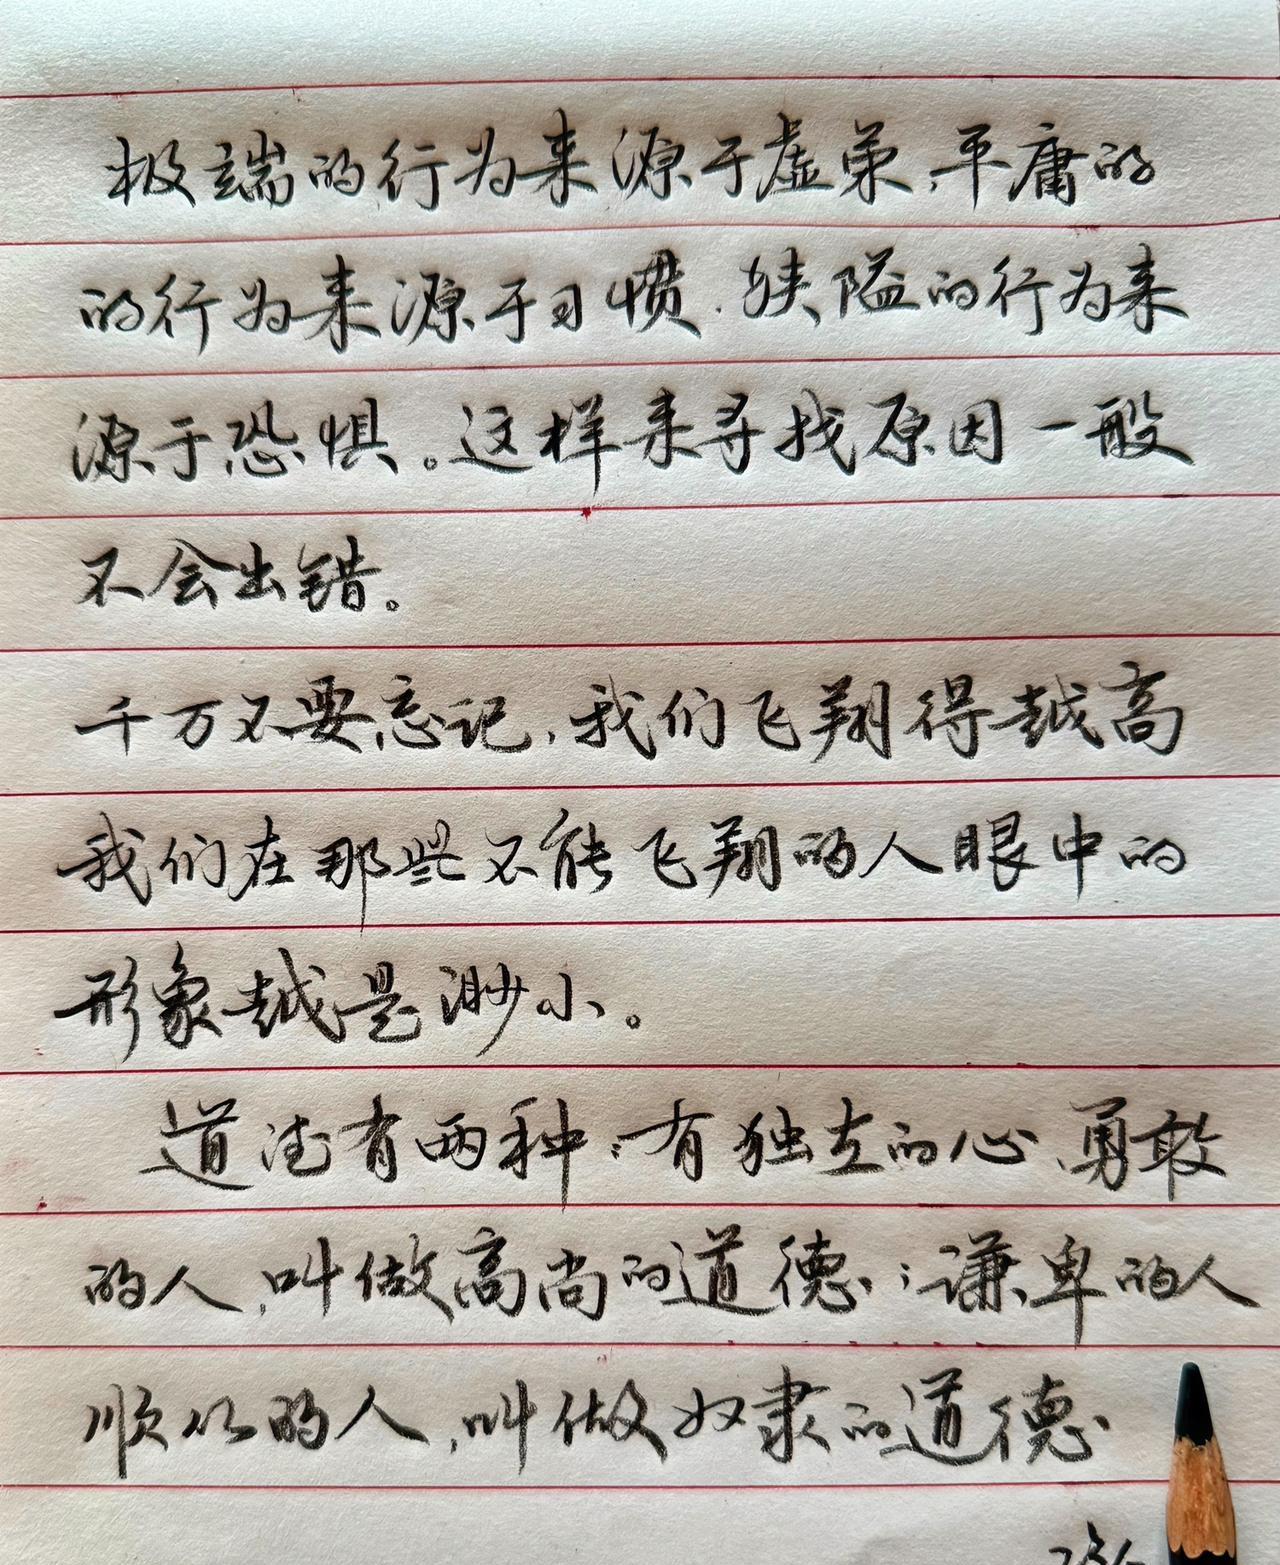 极端的行为来源于虚荣,平庸的
的行为来源于习惯.狭隘的行为来
源于恐惧。这样来寻找原因一般
不会出错。
千万不要忘记,我们飞翔得越高
我们在那些不能飞翔的人眼中的
形象越是渺小。
道德有两种:有独立的心、勇敢
的人,叫做高尚的道德;谦卑的人
顺从的人,叫做奴隶的道德.